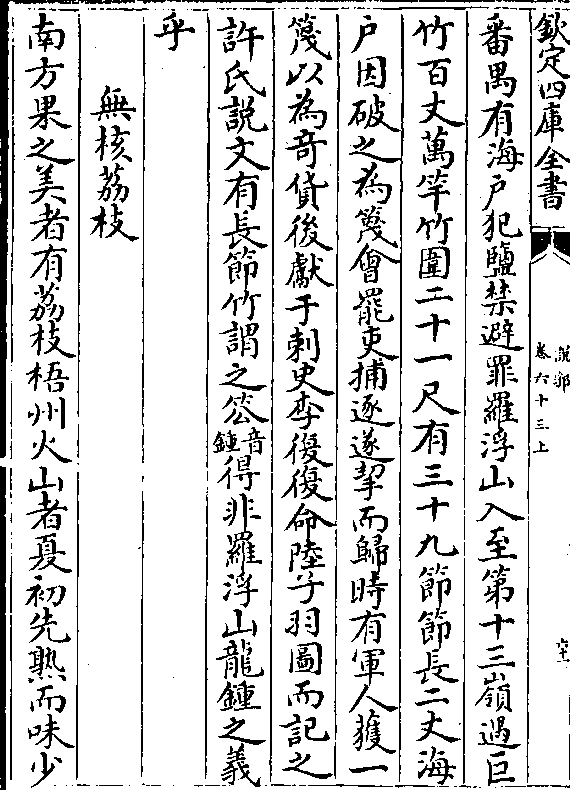 欽定四庫全書
說郛
卷六十三上
番禺有海户犯鹽禁避罪羅浮山入至第十三嶺遇巨
竹百丈萬竿竹圍二十一尺有三十九節節長二丈海
户因破之為篾會罷吏捕逐遂挈而歸時有軍人獲一
篾以為奇貨後獻于刺史李復復命陸子羽圖而記之
許氏説文有長節竹謂之䈵音鍾得非羅浮山龍鍾之義
乎
無核荔枝
南方果之美者有荔枝梧州火山者夏初先熟而味少